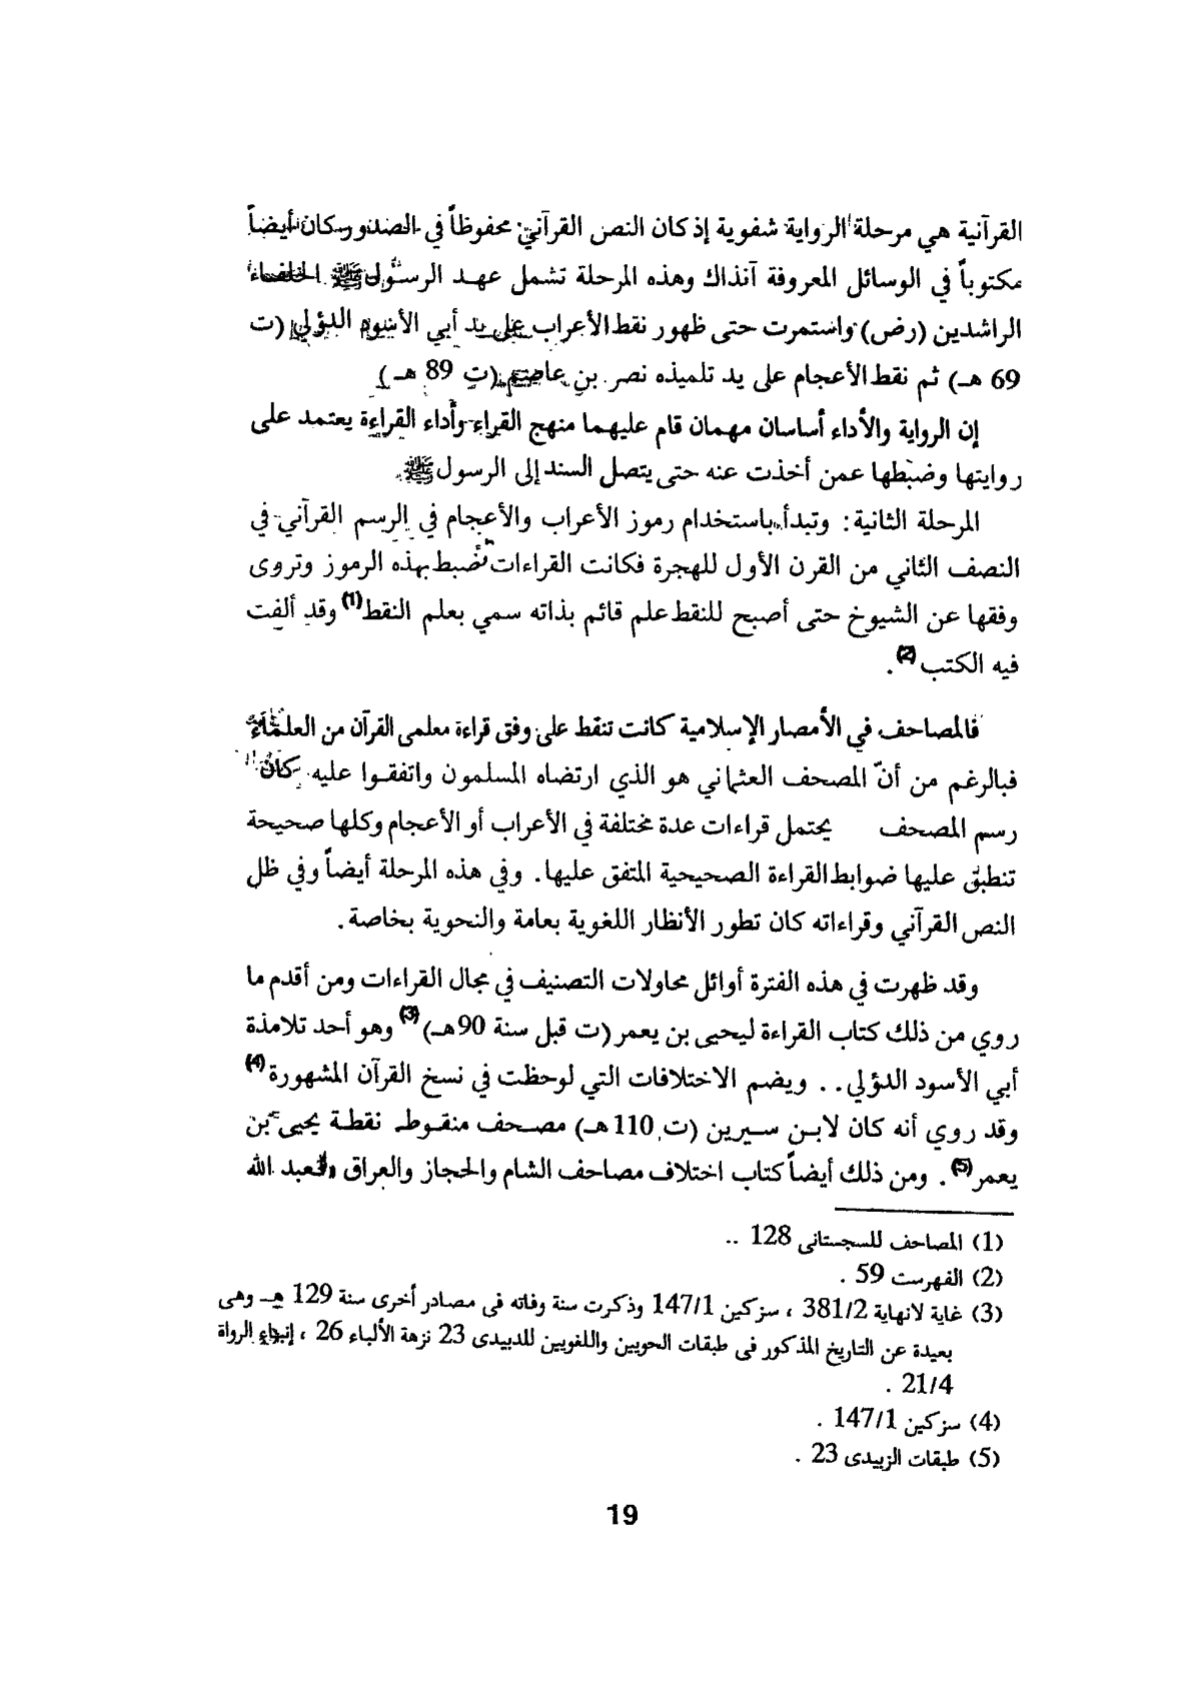 القرآنية هي مرحلة الرواية شفوية إذ كان النص القرآني محفوظاً في الصدور وكان أيضاً
مكتوباً في الوسائل المعروفة آنذاك وهذه المرحلة تشمل عهد الرسول ﷺ الخلفاء
الراشدين (رض) واستمرت حتى ظهور نقط الأعراب على يد أبي الأسود الدؤلي (ت
69 هـ) ثم نقط الأعجام على يد تلميذه نصر بن عاصم (ت 89 هـ)
إن الرواية والأداء أساسان مهمان قام عليهما منهج القراء وأداء القراءة يعتمد على
روايتها وضبطها عمن أخذت عنه حتى يتصل السند إلى الرسول ﷺ
المرحلة الثانية: وتبدأ باستخدام رموز الأعراب والأعجام في الرسم القرآني في
النصف الثاني من القرن الأول للهجرة فكانت القراءات تُضبط بهذه الرموز وتروى
وفقها عن الشيوخ حتى أصبح للنقط علم قائم بذاته سمي بعلم النقط(1) وقد ألفت
فيه الكتب(2).
فالمصاحف في الأمصار الإسلامية كانت تنقط على وفق قراءة معلمى القرآن من العلماء
فبالرغم من أنّ المصحف العثماني هو الذي ارتضاه المسلمون واتفقوا عليه كان
رسم المصحف يحتمل قراءات عدة مختلفة في الأعراب أو الأعجام وكلها صحيحة
تنطبق عليها ضوابط القراءة الصحيحية المتفق عليها. وفي هذه المرحلة أيضاً وفي ظل
النص القرآني وقراءاته كان تطور الأنظار اللغوية بعامة والنحوية بخاصة.
وقد ظهرت في هذه الفترة أوائل محاولات التصنيف في مجال القراءات ومن أقدم ما
روي من ذلك كتاب القراءة ليحيى بن يعمر (ت قبل سنة 90هـ)(3) وهو أحد تلامذة
أبي الأسود الدؤلي.. ويضم الاختلافات التي لوحظت في نسخ القرآن المشهورة(4)
وقد روي أنه كان لابن سيرين (ت 110هـ) مصحف منقوط نقطة يحيى بن
يعمر(5). ومن ذلك أيضاً كتاب اختلاف مصاحف الشام والحجاز والعراق لعبد الله
(1) المصاحف للسجستانى 128 ..
(2) الفهرست 59 .
(3) غاية لانهاية 381/2 ، سزكين 147/1 وذكرت سنة وفاته فى مصادر أخرى سنة 129 هـ وهى
بعيدة عن التاريخ المذكور فى طبقات الحويين واللغويين للدبيدى 23 نزهة الألباء 26 ، إنباء الرواة
21/4 .
(4) سزكين 147/1 .
(5) طبقات الزبيدى 23 .
19